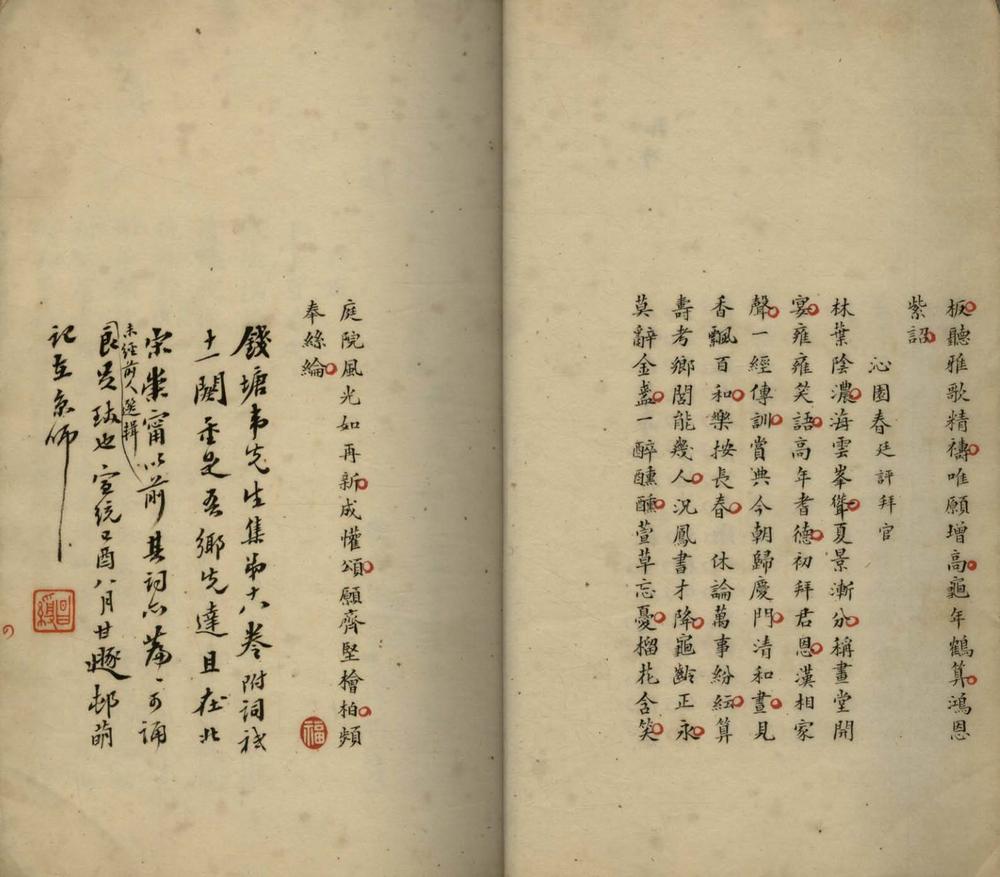 板聽雅歌精禱唯願增高龜年鶴算鴻恩
紫詔
沁園春廷評拜官
林葉陰濃海雲峯聳夏景漸分稱畫堂開
宴雍雍笑語高年耆德初拜君恩漢相家
聲一經傳訓賞典今朝歸慶門清和晝見
香飄百和樂按長春 休論萬事紛紜算
壽考鄉閭能幾人況鳳書才降龜齡正永
莫辭金盞一醉醺醺萱草忘憂榴花含笑
庭院風光如再新成懽頌願齊堅檜柏頻
奉絲綸
福
錢塘韋先生集第十八卷附詞祗
十一闋要是吾鄉先達且在北
宋崇甯以前其詞亦篇篇可誦
未經前人選輯
良足珍也宣統己酉八月甘遯邨萌
記在京師